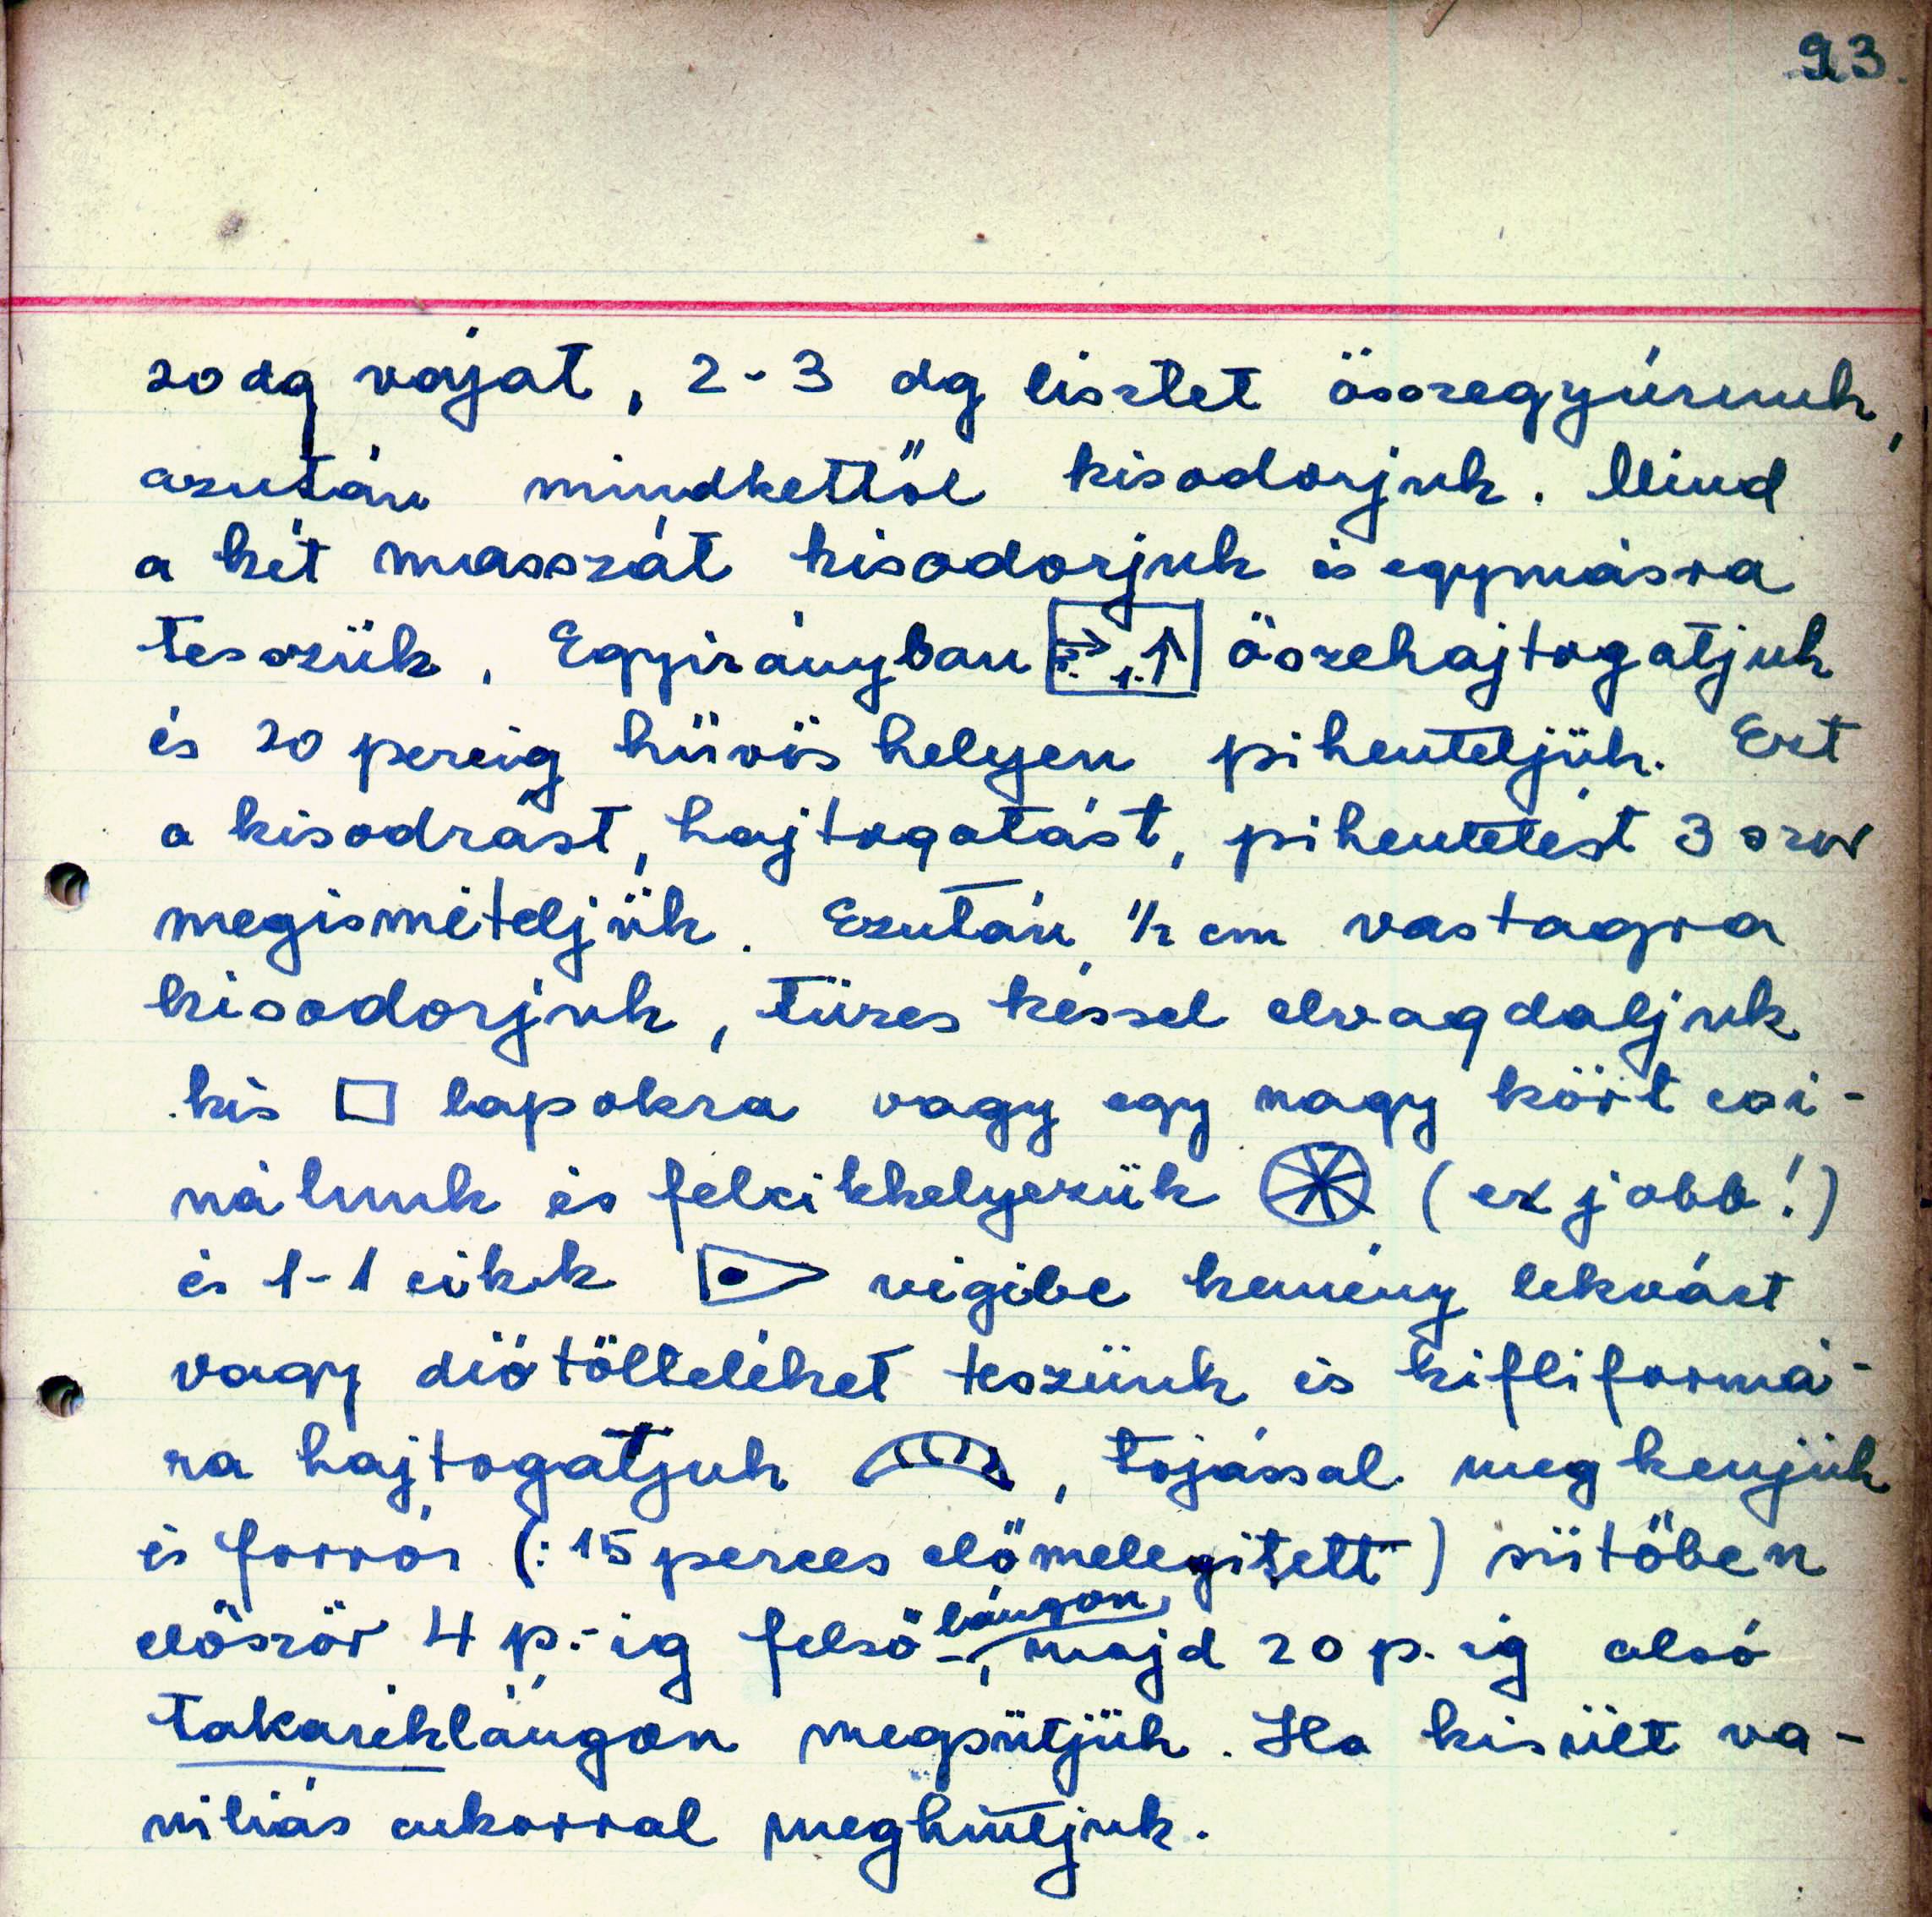 93.
20 dg vajat, 2-3 dg lisztet összegyúrunk,
azután mindkettőt kisodorjuk. Mind
a két masszát kisodorjuk és egymásra
tesszük. Egyirányban 2. 1. öszehajtogatjuk
és 20 percig hüvös helyen pihentetjük. Ezt
a kisodrást, hajtogatást, pihentetést 3 szor
megismételjük. Ezután ½ cm vastagra
kisodorjuk, tüzes késsel elvagdaljuk
kis □ lapokra vagy egy nagy kört csi-
nálunk és felcikkelyezük (ez jobb!)
és 1-1 cikk végibe kemény lekvárt
vagy diótölteléket teszünk és kifliformá-
ra hajtogatjuk, tojással megkenjük
és forró (: 15 perces előmelegitett) sütőben
először 4 p.-ig felső lángon, majd 20 p.-ig alsó
takaréklángon megsütjük. Ha kisült va-
niliás cukorral meghintjük.